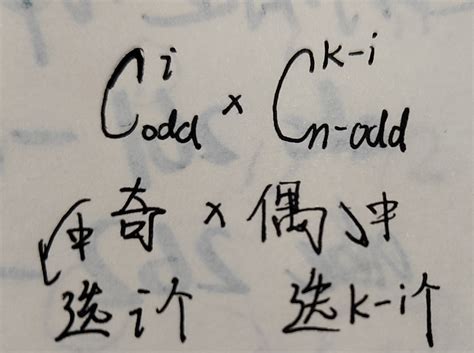 C_{odd}^{i} × C_{n-odd}^{k-i}
奇中 × 偶中
选i个 选k-i个